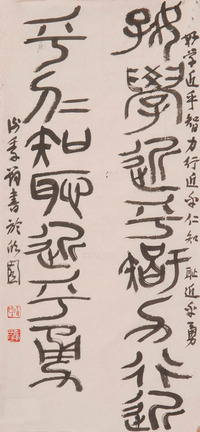 好学近乎智力行近乎仁知耻近乎勇
好學近乎智力行近
乎仁知恥近乎勇
書於